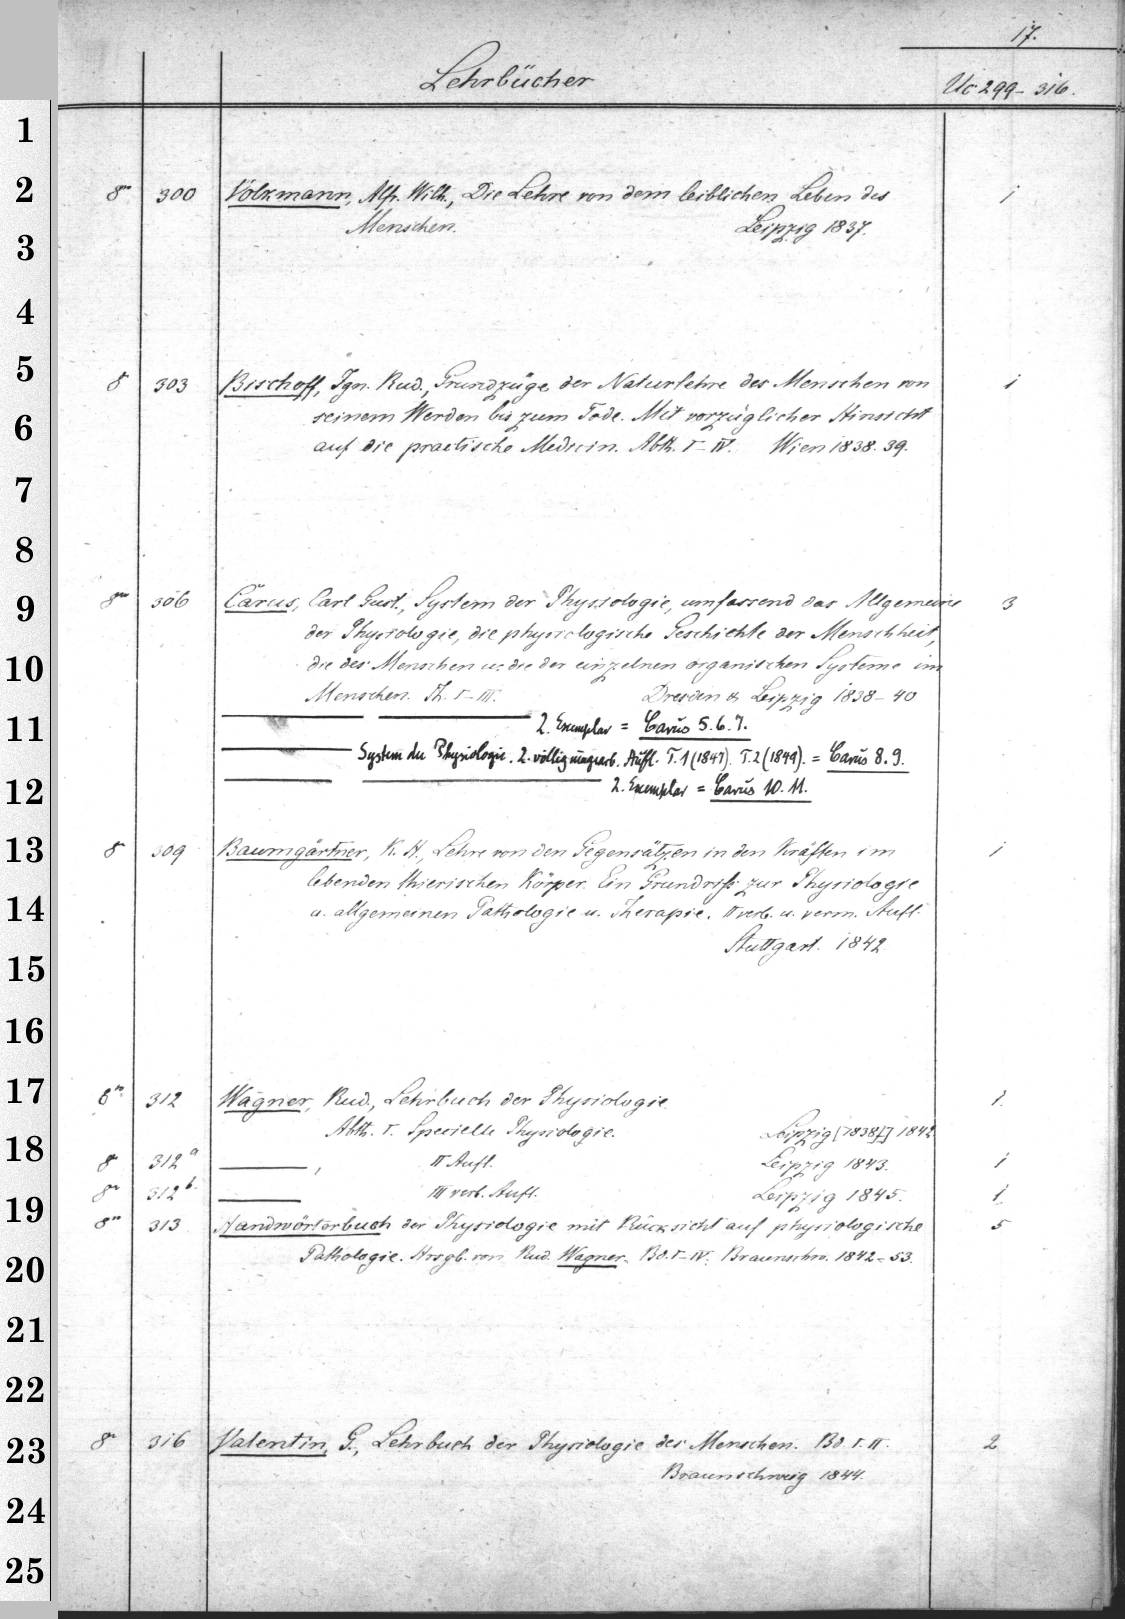 17.
Lehrbücher Uc 299-316.
1
2
8º 300 Volkmann, Alfr. Wilh., Die Lehre von dem leiblichen Leben des 1
Menschen. Leipzig 1837.
3
4
5
8 303 Bischoff, Ign. Rud., Grundzüge der Naturlehre des Menschen von 1
seinem Werden bis zum Tode. Mit vorzüglicher Hinsicht
6
auf die practische Medicin. Abth. I-IV. Wien 1838. 39.
7
8
9
8º 306 Carus, Carl Gust., System der Physiologie, umfassend das Allgemeine 3
der Physiologie, die physiologische Geschichte der Menschheit,
10
die des Menschen u. die der einzelnen organischen Systeme im
Menschen. Th. I-III. Dresden & Leipzig 1838-40
11
2. Exemplar = Carus 5. 6. 7.
System der Physiologie. 2. völlig umgearb. Aufl. T. 1 (1847). T. 2 (1849). = Carus 8. 9.
12
2. Exemplar = Carus 10. 11.
13
8 309 Baumgärtner, K. H., Lehre von den Gegensätzen in den Kräften im 1
lebenden thierischen Körper. Ein Grundriß zur Physiologie
14
u. allgemeinen Pathologie u. Therapie. II verb. u. verm. Aufl.
Stuttgart. 1842
15
16
17
8º 312 Wagner, Rud., Lehrbuch der Physiologie 1.
Abth. I. Specielle Physiologie. Leipzig [1838[?] 1842
18
8 312a —, II Aufl. Leipzig 1843. 1
8º 312b. — III verb. Aufl. Leipzig 1845. 1.
19
8º 313 Handwörterbuch der Physiologie mit Rücksicht auf physiologische 5
Pathologie. Hrsgb. von Rud. Wagner. Bd. I-IV. Braunschw. 1842-53.
20
21
22
23
8º 316 Valentin, G., Lehrbuch der Physiologie des Menschen. Bd. I. II. 2
Braunschweig 1844.
24
25